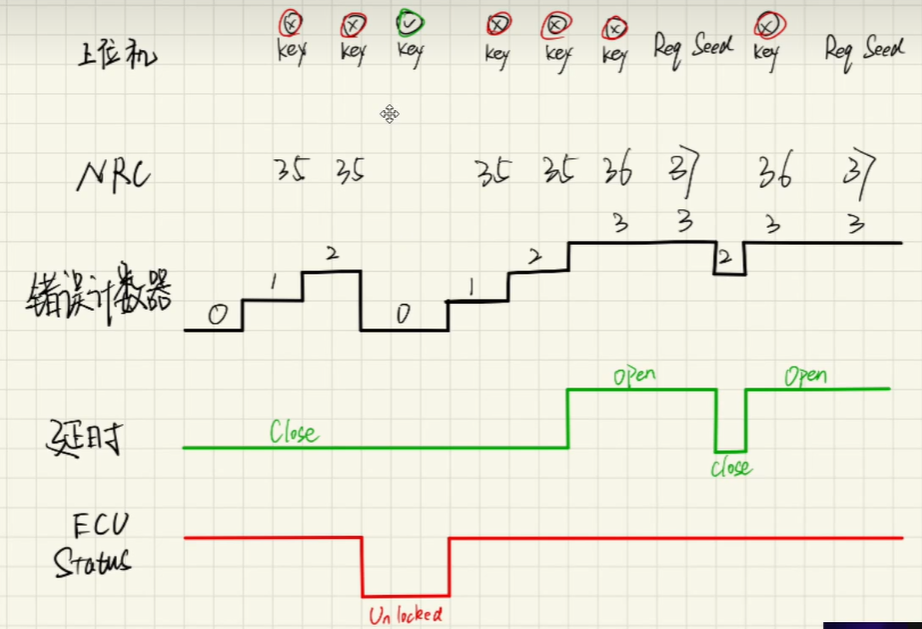 ⓧ ⓧ ✓ ⓧ ⓧ ⓧ ⓧ
上位机 key key key key key key Req Seed key Req Seed
NRC 35 35 35 35 36 37 36 37
错误计数器 0 1 2 0 1 2 3 3 2 3 3
延时 Close Open Close Open
ECU
Status
Unlocked